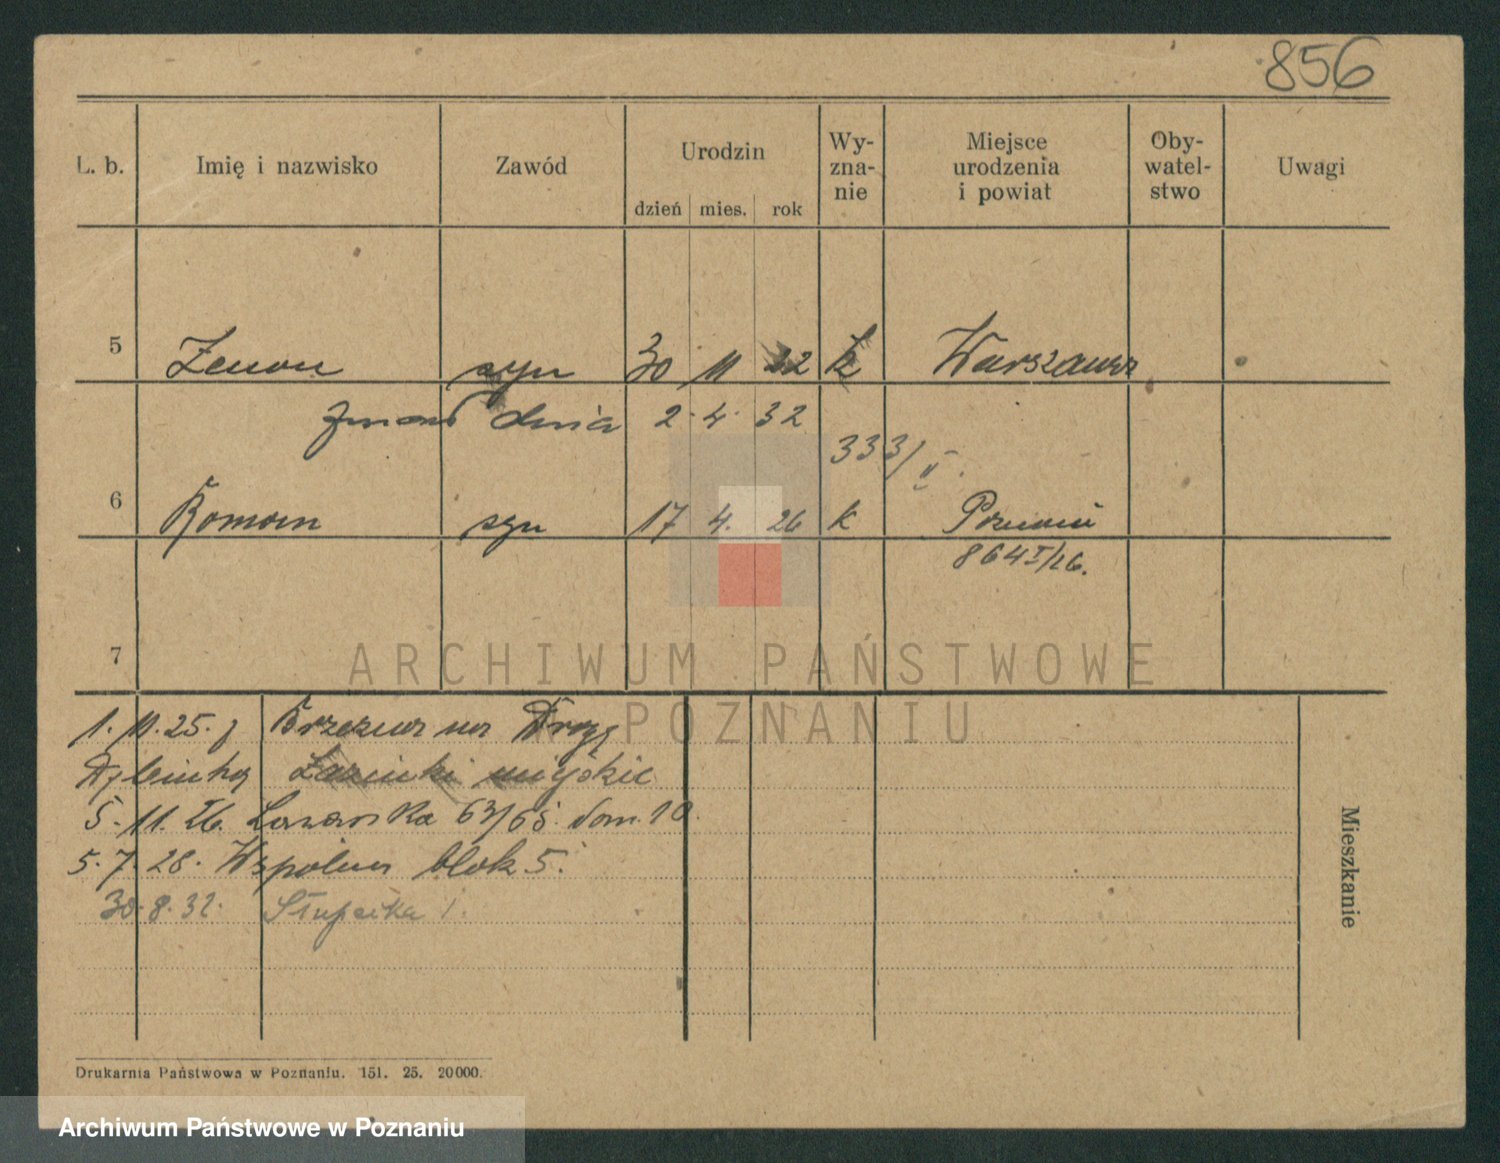 856
L. b. Imię i nazwisko Zawód Urodzin Wy-zna-nie Miejsce urodzenia i powiat Oby-watel-stwo Uwagi
dzień mies. rok
5 Zenon syn 30 11 22 k Warszawa
zmarł dnia 2. 4. 32
333/II.
6 Roman syn 17 4. 26 k Poznań
864 I/26.
7
ARCHIWUM PAŃSTWOWE
W POZNANIU
1. 11. 25. z Brzezna na
Łazienki miejskie
5. 11. 26. Lazarska 63/65. dom. 10
5. 7. 28. Wspólna blok 5.
30. 8. 32. Słupska 1.
Mieszkanie
Drukarnia Państwowa w Poznaniu. 151. 25. 20000.
Archiwum Państwowe w Poznaniu